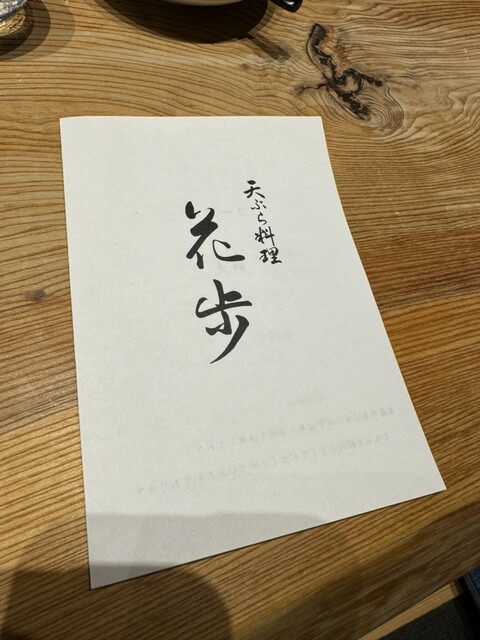 天ぷら料理
花歩